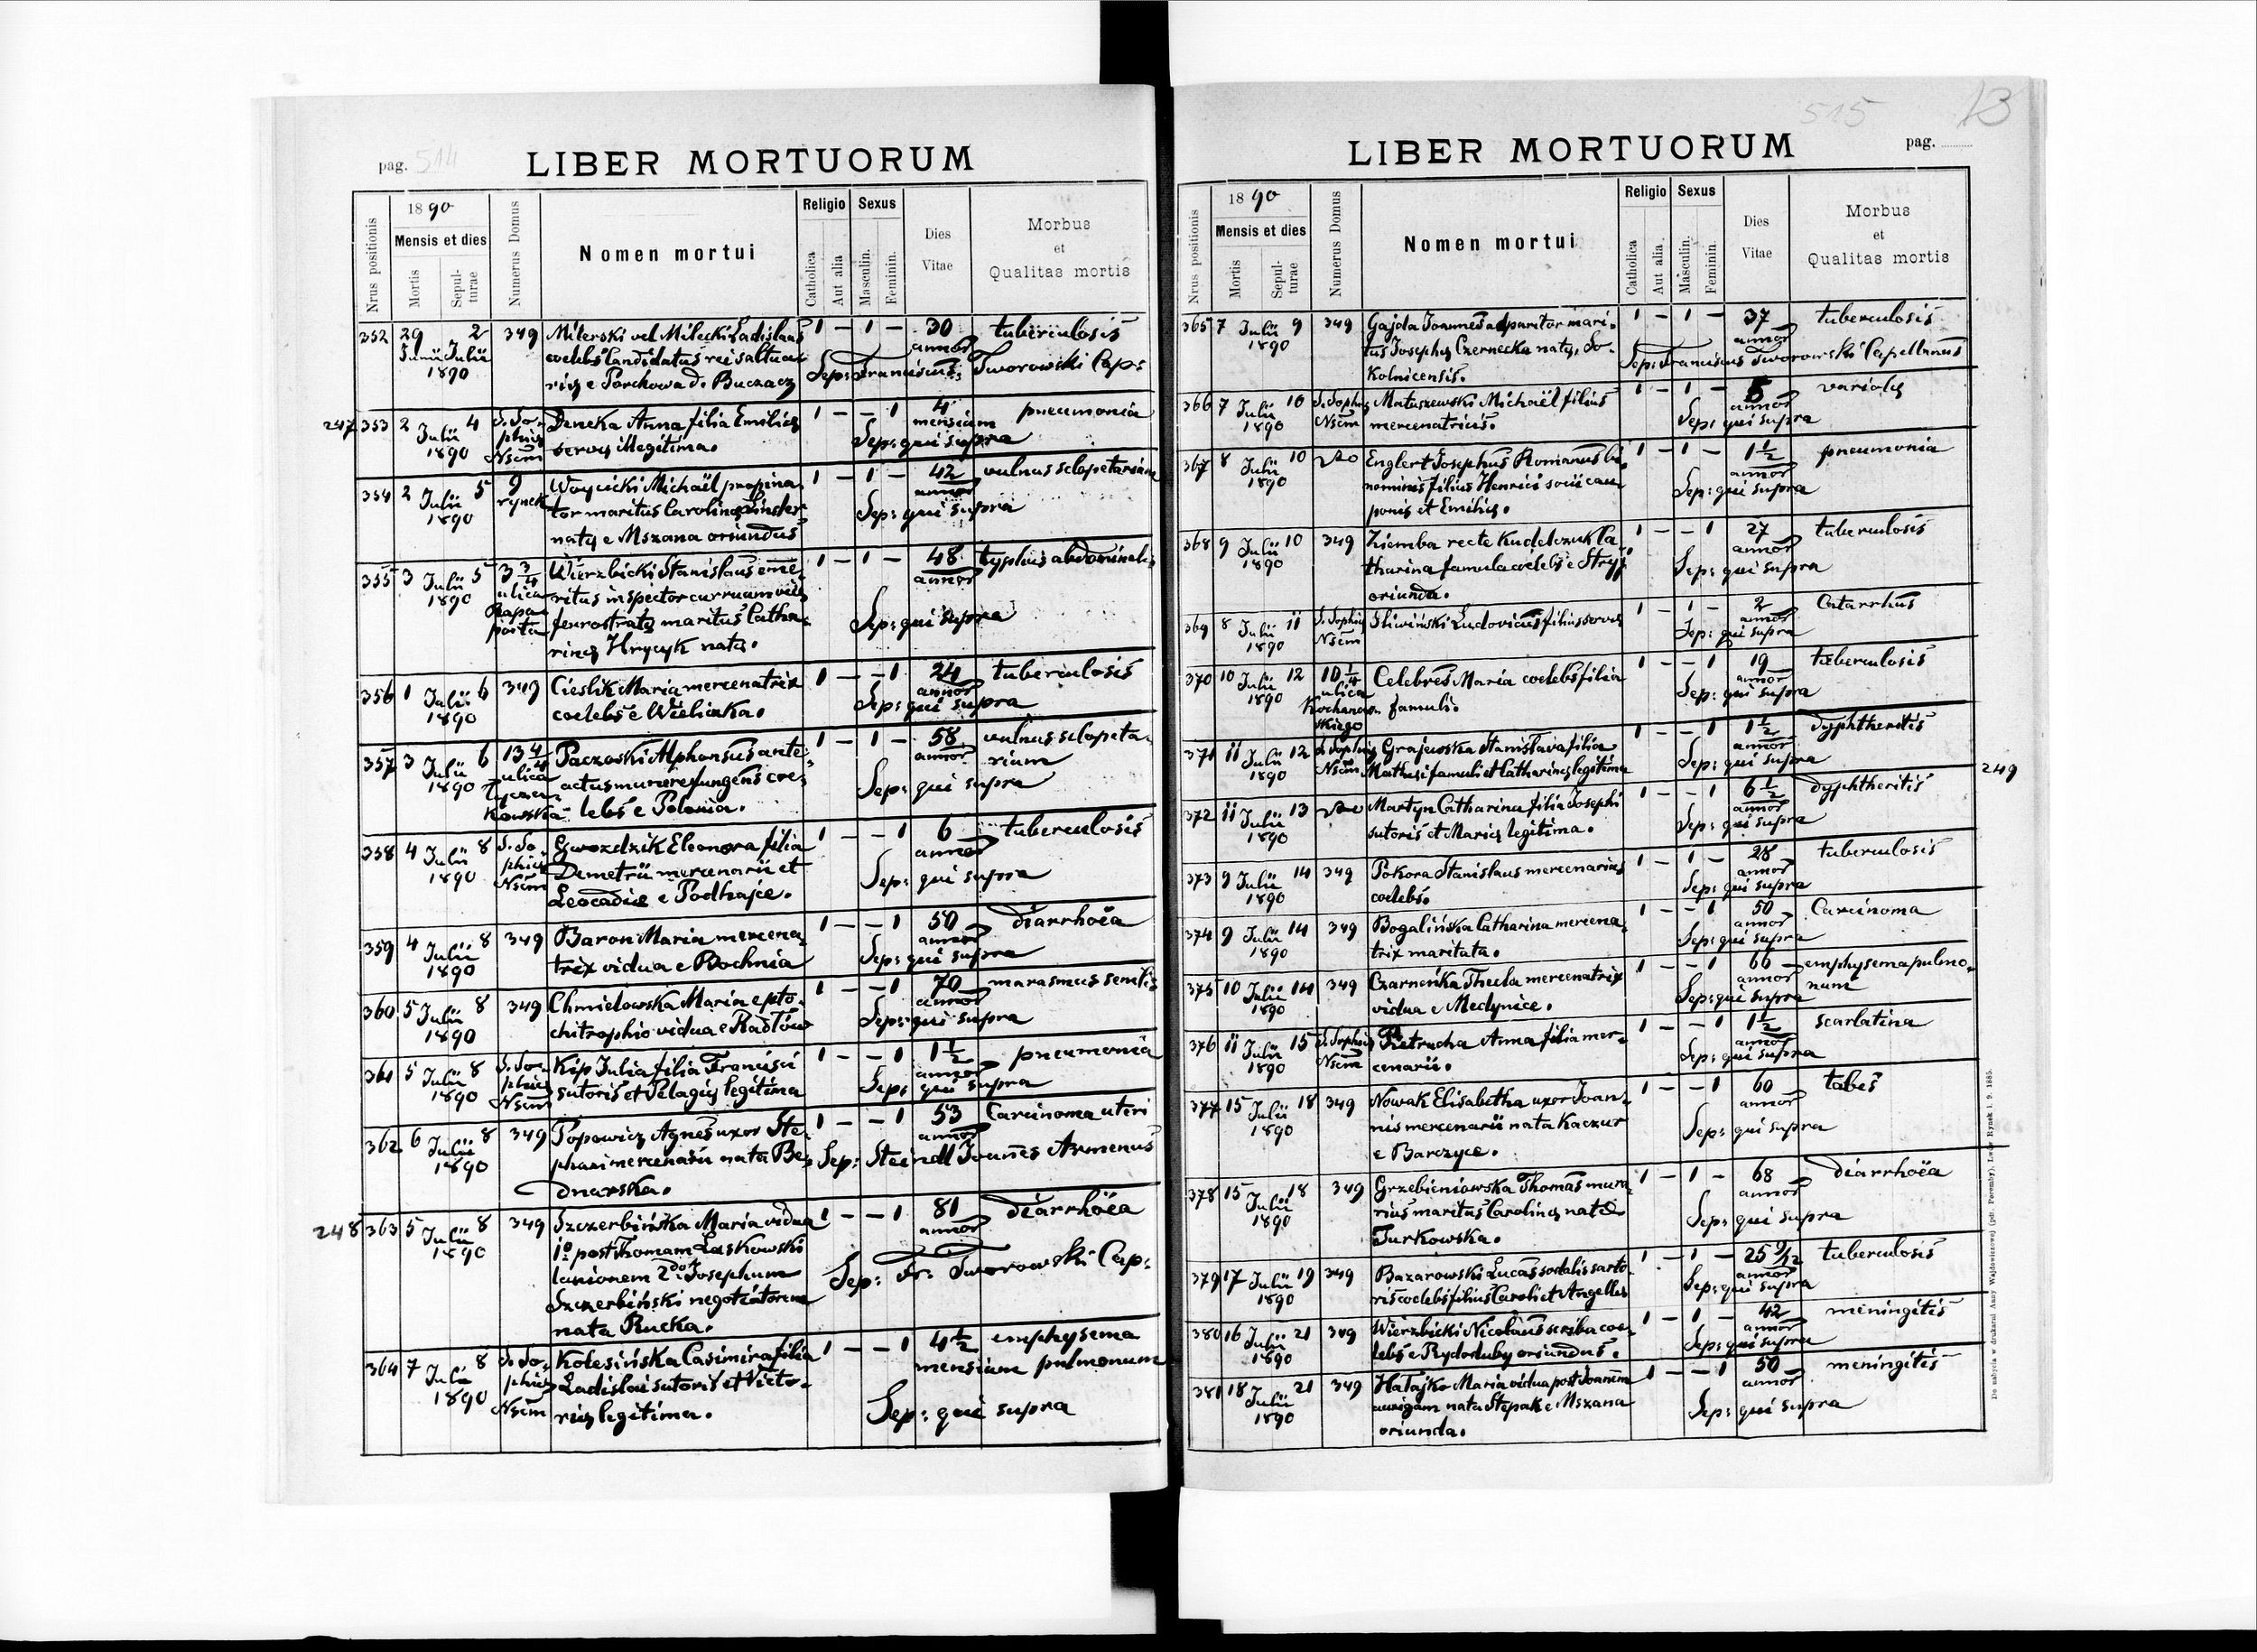 pag. 514
LIBER MORTUORUM
Nrus positionis
1890
Mensis et dies
Mortis
Sepulturae
Numerus Domus
Nomen mortui
Religio
Catholica
Aut alia
Sexus
Masculin.
Feminin.
Dies Vitae
Morbus et Qualitas mortis
352 29 2 349 Milerski vel Milecki Ladislaus 1 – 1 – 30 tuberculosis
Junii Julii coelebs Candidatus rei saltua- annor
1890 riæ e Porchowa d. Buczacz Sep: Franciscus Tworowski Cap:
247 353 2 Julii 4 S. So- Deneka Anna filia Emiliæ 1 – – 1 4 pneumonia
1890 phiæ servæ illegitima. mensium
Nsum Sep: qui supra
354 2 Julii 5 9 Woycicki Michaël propina- 1 – 1 – 42 vulnus sclopetarium
1890 rynek tor maritus Carolinæ Linder annor
natæ e Mszana oriundus Sep: qui supra
355 3 Julii 5 3 3/4 Wierzbicki Stanislaus eme- 1 – 1 – 48 typhus abdominalis
1890 ulica ritus inspector curruum viæ annor
Papa- ferrostratæ maritus Catha-
rinæ Hrycyk natæ. Sep: qui supra
356 1 Julii 6 349 Cieslik Maria mercenatrix 1 – – 1 24 tuberculosis
1890 coelebs e Wieliczka. annor
Sep: qui supra
357 3 Julii 6 13 4/4 Paczoski Alphonsus ante- 1 – 1 – 58 vulnus sclopeta-
1890 ulica actus munere fungens coe- annor rium
Łycza-
kowska lebs e Polonia. Sep: qui supra
358 4 Julii 8 S. So- Gwozdzik Eleonora filia 1 – – 1 6 tuberculosis
1890 phiæ Demetrii mercenarii et annor
Nsum Leocadiæ e Podhajce. Sep: qui supra
359 4 Julii 8 349 Baron Maria mercena- 1 – – 1 50 diarrhoëa
1890 trix vidua e Bochnia annor
Sep: qui supra
360 5 Julii 8 349 Chmielowska Maria e pto- 1 – – 1 70 marasmus senilis
1890 chitrophio vidua e Radłów annor
Sep: qui supra
361 5 Julii 8 S. So- Kip Julia filia Francisci 1 – – 1 1 1/2 pneumonia
1890 phiæ sutoris et Pelagiæ legitima annor
Nsum Sep: qui supra
362 6 Julii 8 349 Popowicz Agnes uxor Ste- 1 – – 1 53 Carcinoma uteri
1890 phani mercenarii nata Be- annor
dnarska. Sep: Steindl Joannes Armenus
248 363 5 Julii 8 349 Szczerbińska Maria vidua 1 – – 1 81 diarrhoëa
1890 1o post Thomam Laskowski annor
lanionem 2do Josephum
Szczerbiński negotiatorem Sep: Fr. Tworowski Cap:
nata Rucka.
364 7 Julii 8 S. So- Kolesińska Casimira filia 1 – – 1 4 1/2 emphysema
1890 phiæ Ladislai sutoris et Victo- mensium pulmonum
Nsum riæ legitima. Sep: qui supra
515
13
LIBER MORTUORUM
pag.
Nrus positionis
1890
Mensis et dies
Mortis
Sepulturae
Numerus Domus
Nomen mortui
Religio
Catholica
Aut alia
Sexus
Masculin.
Feminin.
Dies Vitae
Morbus et Qualitas mortis
365 7 Julii 9 349 Gajda Joannes apparitor mari- 1 – 1 – 37 tuberculosis
1890 tus Josephæ Czernecka natæ, So- annor
kolnicensis. Sep: Franciscus Tworowski Capellanus
366 7 Julii 10 S. Sophiæ Matuszewski Michaël filius 1 – 1 – 5 variolæ
1890 Nsum mercenatricis. annor
Sep: qui supra
367 8 Julii 10 Englert Josephus Romanus bi- 1 – 1 – 1 1/2 pneumonia
1890 nominis filius Henrici socii cau- annor
ponis et Emiliæ. Sep: qui supra
368 9 Julii 10 349 Ziemba recte Kudelczuk Ca- 1 – – 1 27 tuberculosis
1890 tharina famula coelebs e Stryj annor
oriunda. Sep: qui supra
369 8 Julii 11 S. Sophiæ Sliwiński Ludovicus filius servæ 1 – 1 – 2 Catarrhus
1890 Nsum annor
Sep: qui supra
370 10 Julii 12 10 1/4 Celebres Maria coelebs filia 1 – – 1 19 tuberculosis
1890 ulica annor
Kochanow- famuli. Sep: qui supra
skiego
371 11 Julii 12 S. Sophiæ Grajewska Stanislava filia 1 – – 1 1 1/2 dyphtheritis
1890 Nsum Mathæi famuli et Catharinæ legitima annor
Sep: qui supra
249
372 11 Julii 13 Martyn Catharina filia Josephi 1 – – 1 6 1/2 dyphtheritis
1890 sutoris et Mariæ legitima. annor
Sep: qui supra
373 9 Julii 14 349 Pokora Stanislaus mercenarius 1 – 1 – 28 tuberculosis
1890 coelebs. annor
Sep: qui supra
374 9 Julii 14 349 Bogalińska Catharina mercena- 1 – – 1 50 Carcinoma
1890 trix maritata. annor
Sep: qui supra
375 10 Julii 14 349 Czarnenka Thecla mercenatrix 1 – – 1 66 emphysema pulmo-
1890 vidua e Medynice. annor num
Sep: qui supra
376 11 Julii 15 S. Sophiæ Pietrucha Anna filia mer- 1 – – 1 1 1/2 scarlatina
1890 Nsum cenarii. annor
Sep: qui supra
377 15 Julii 18 349 Nowak Elisabetha uxor Joan- 1 – – 1 60 tabes
1890 nis mercenarii nata Kaczur annor
e Barczyce. Sep: qui supra
378 15 Julii 18 349 Grzebieniowska Thomas mura- 1 – 1 – 68 diarrhoëa
1890 rius maritus Carolinæ natæ annor
Turkowska. Sep: qui supra
379 17 Julii 19 349 Bazarowski Lucas sodalis sarto- 1 – 1 – 25 9/12 tuberculosis
1890 ris coelebs filius Caroli et Angellæ annor
Sep: qui supra
380 16 Julii 21 349 Wierzbicki Nicolaus scriba coe- 1 – 1 – 42 meningitis
1890 lebs e Rydoduby oriundus. annor
Sep: qui supra
381 18 Julii 21 349 Hatajko Maria vidua post Joannem 1 – – 1 50 meningitis
1890 aurigam nata Stepak e Mszana annor
oriunda. Sep: qui supra
Do nabycia w drukarni Anny Wajdowiczowej (pdr. Poremby), Lwów Rynek l. 9. 1885.